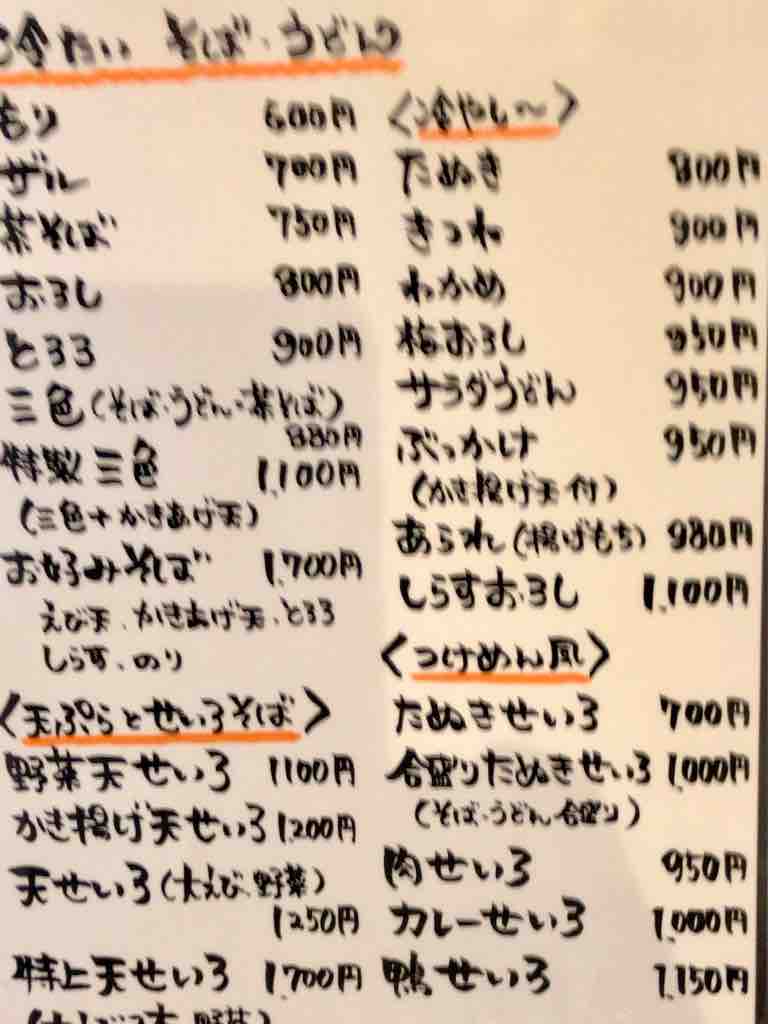 冷たい そば・うどん
もり 600円
ザル 700円
茶そば 750円
おろし 800円
とろろ 900円
三色(そば・うどん・茶そば)
880円
特製三色 1,100円
(三色+かきあげ天)
お好みそば 1,700円
えび天、かきあげ天、とろろ
しらす、のり
〈天ぷらとせいろそば〉
野菜天せいろ 1100円
かき揚げ天せいろ 1200円
天せいろ(大えび、野菜)
1250円
特上天せいろ 1,700円
〈冷やし〜〉
たぬき 800円
きつね 900円
わかめ 900円
梅おろし 950円
サラダうどん 950円
ぶっかけ 950円
(かき揚げ天付)
あられ(揚げもち) 980円
しらすおろし 1,100円
〈つけめん風〉
たぬきせいろ 700円
合盛りたぬきせいろ 1,000円
(そば・うどん合盛り)
肉せいろ 950円
カレーせいろ 1,000円
鴨せいろ 1,150円